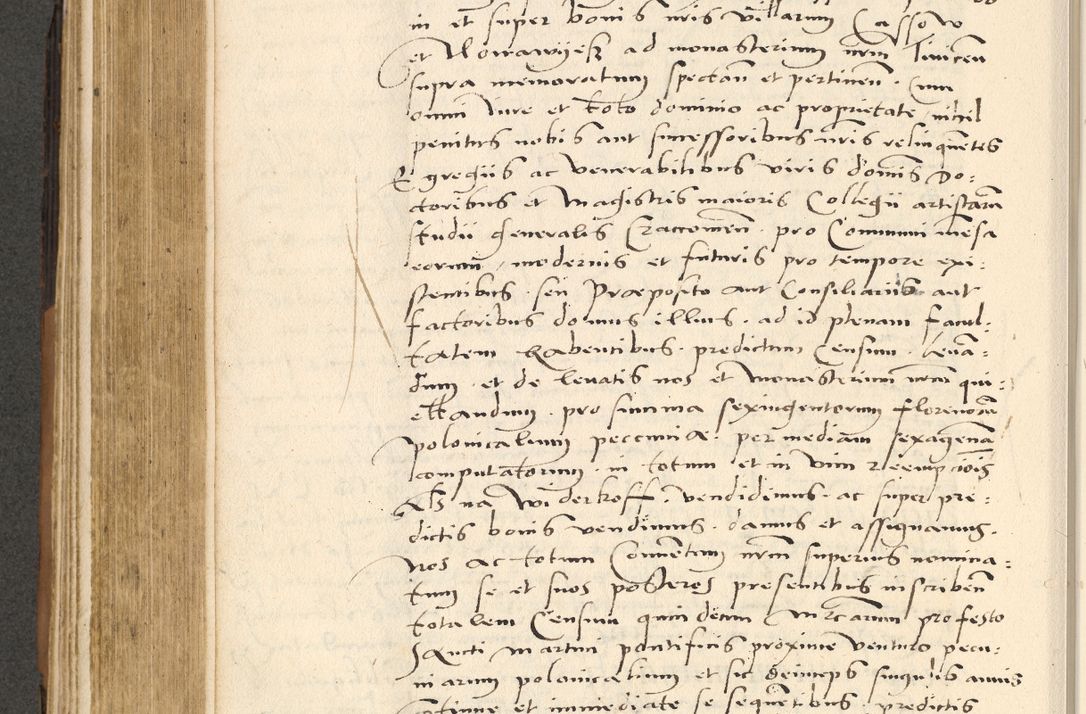 in et super bonis nris villarum Cassow
et Morawyesz ad monasterium nrm Tinicen
supra memoratum spectan et pertinen. Cum
omni iure et toto dominio ac proprietate, nihil
penitus nobis aut successoribus nris relinquetes
Egregiis ac venerabilibus viris domis Do:
ctoribus et Magistris maioris Collegii artistaru
studii generalis Craccouien. pro Communi mesa
eorum, modernis et futuris pro tempore exi:
stentibus. seu Præposito aut Consiliariis aut
factoribus domus illius. ad id plenam facul:
tatem habentibus. predictum Censum. leua:
dum. et de leuatis nos et monasterium nrm qui:
ettandum. pro summa sexingentorum florenoru
polonicalium pecuniæ. per mediam sexagena
computatorum. in totum et in vim reempciois
als na widerkoff. vendidimus. ac super pre:
dictis bonis vendimus. damus et assignamus.
nos ac totum Conuentum nrm superius nomina:
tum se et suos posteros presentibus inscriben
totalem Censum quindecim Mrcarum pro festo
Sancti Martini pontificis proxime venturo pecu:
niarum polonicalium et sic deinceps singulis annis
continue et immediate se sequetibus. predictis